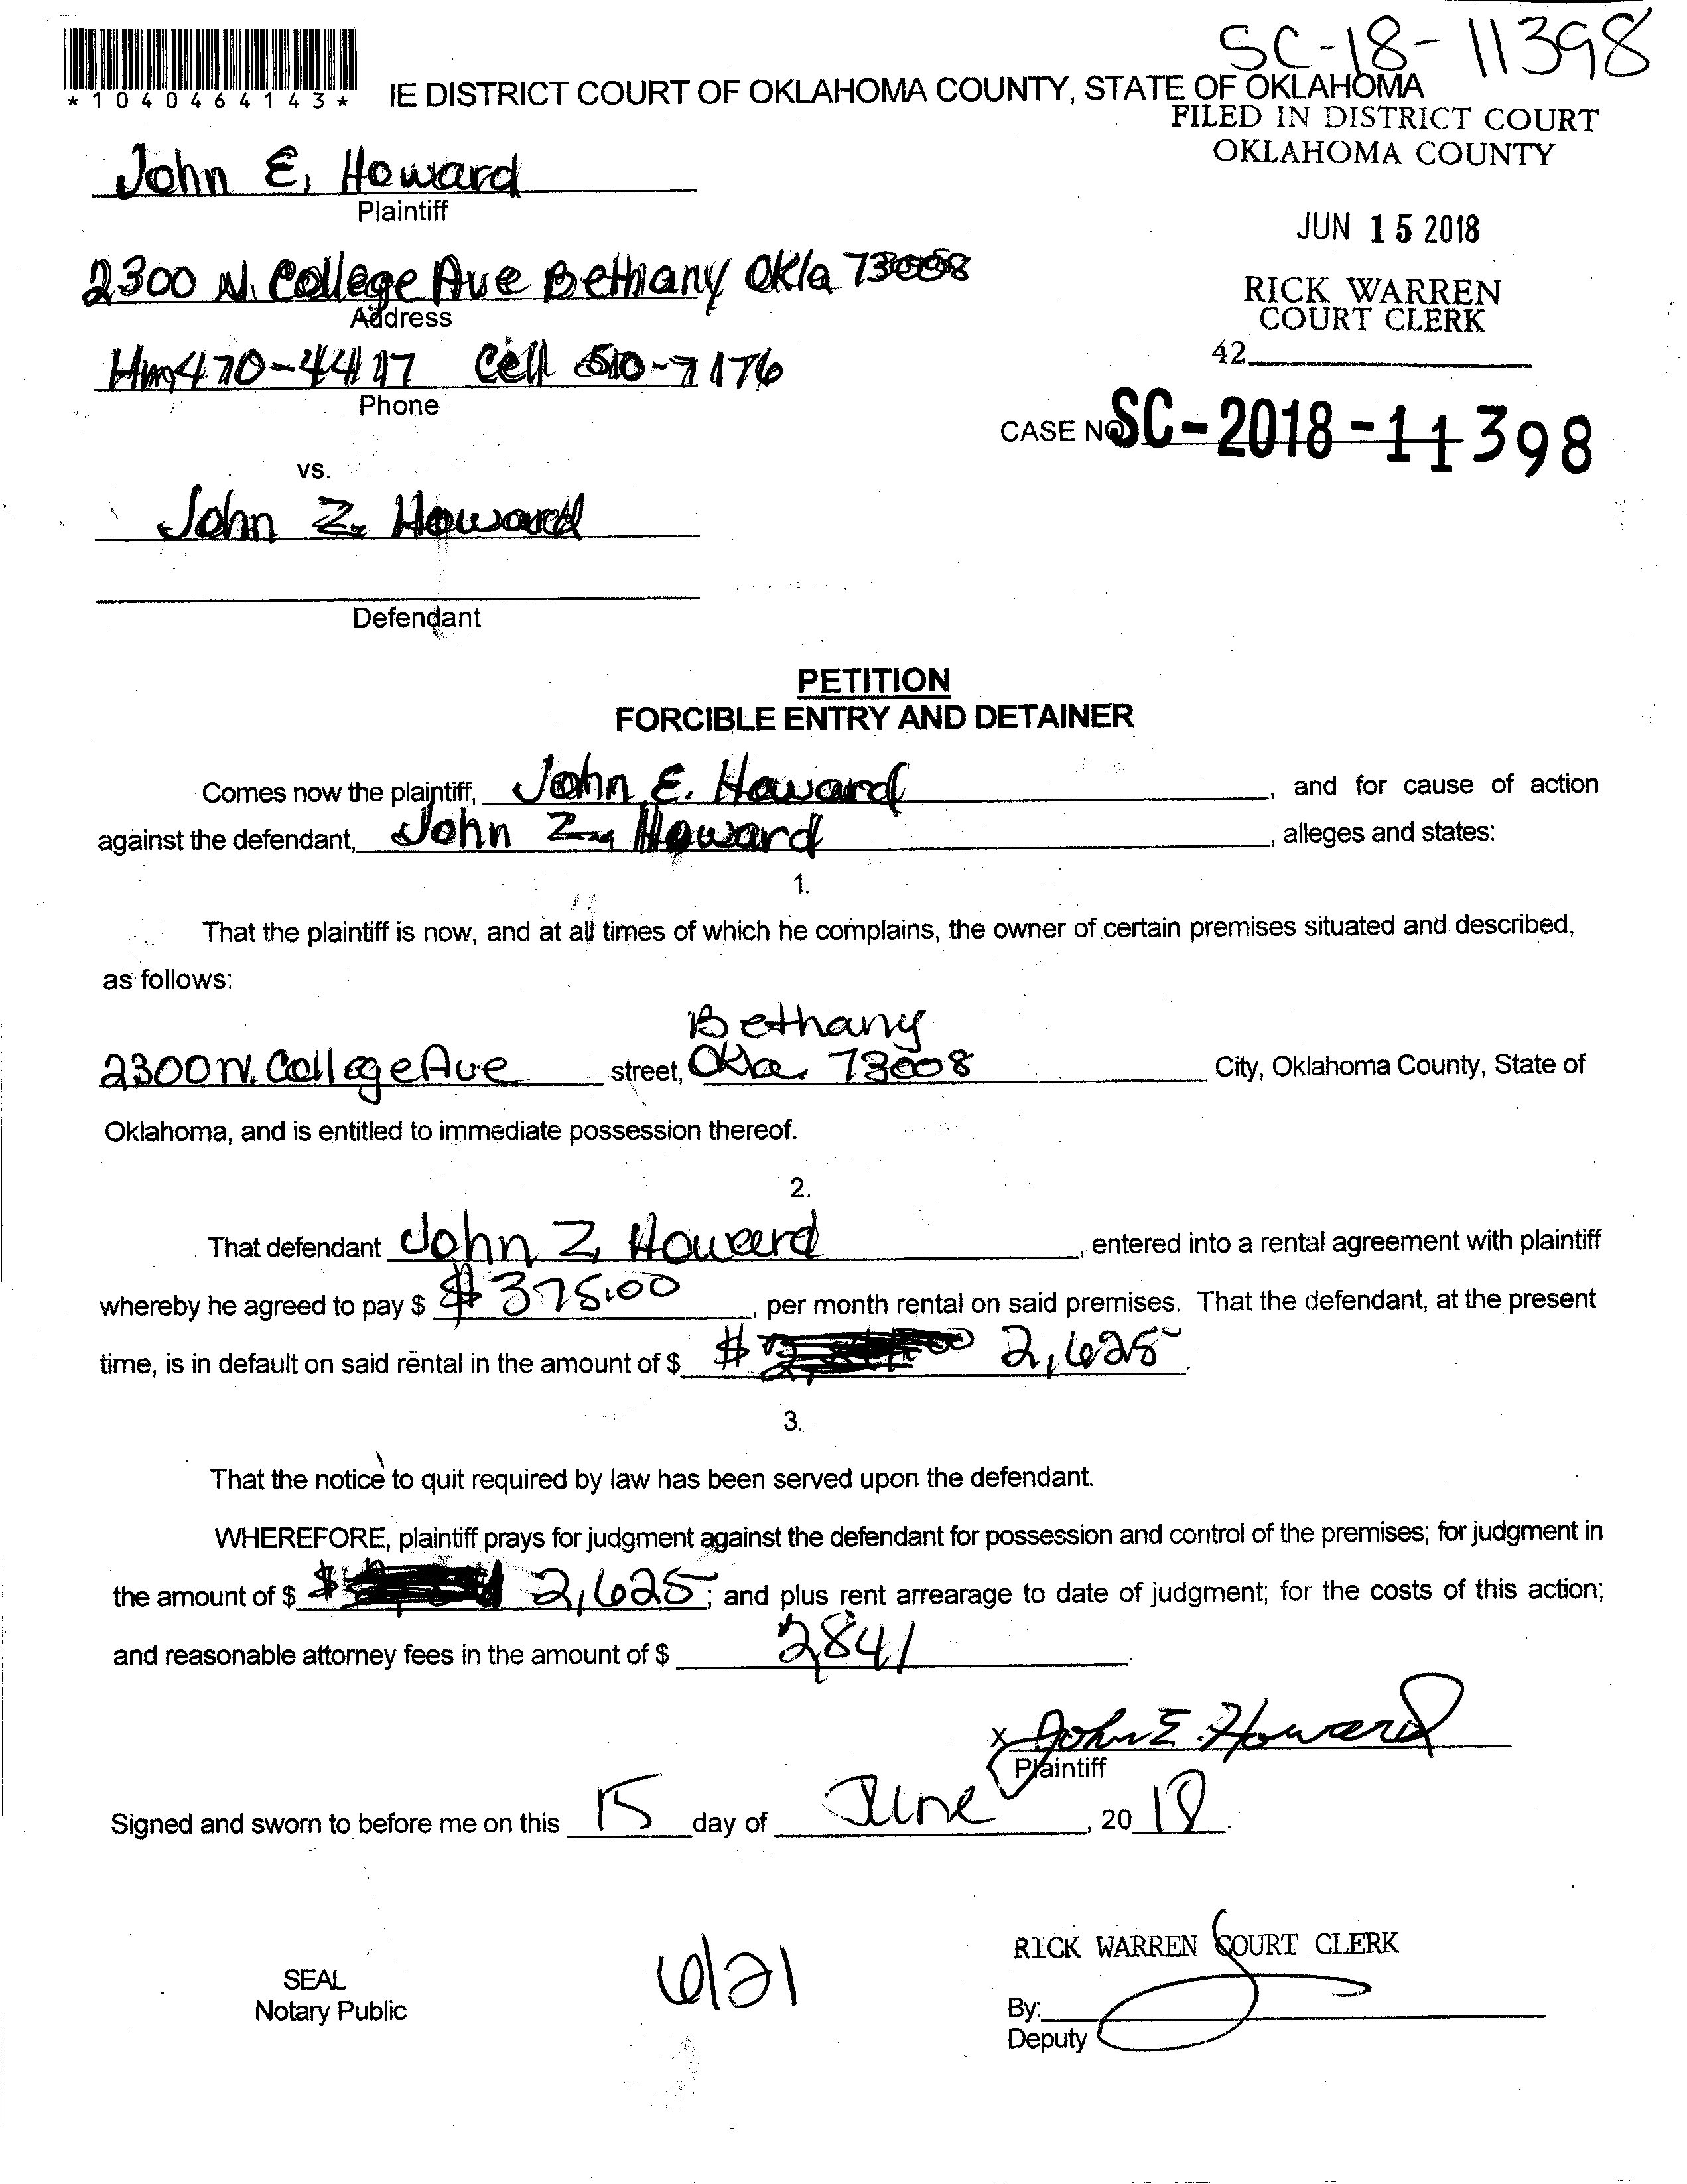 SC-18-11398
*1040464143*
IE DISTRICT COURT OF OKLAHOMA COUNTY, STATE OF OKLAHOMA
FILED IN DISTRICT COURT
OKLAHOMA COUNTY
John E. Howard
Plaintiff
JUN 15 2018
2300 N. College Ave Bethany Okla 73008
Address
RICK WARREN
COURT CLERK
42
Hm 470-4417 Cell 510-7176
Phone
CASE NO SC-2018-11398
vs.
John Z. Howard
Defendant
PETITION
FORCIBLE ENTRY AND DETAINER
Comes now the plaintiff, John E. Howard, and for cause of action
against the defendant, John Z. Howard, alleges and states:
1.
That the plaintiff is now, and at all times of which he complains, the owner of certain premises situated and described,
as follows:
Bethany
2300 N. College Ave street, Okla. 73008 City, Oklahoma County, State of
Oklahoma, and is entitled to immediate possession thereof.
2.
That defendant John Z. Howard, entered into a rental agreement with plaintiff
whereby he agreed to pay $ $375.00, per month rental on said premises. That the defendant, at the present
time, is in default on said rental in the amount of $ $ 2,625.
3.
That the notice to quit required by law has been served upon the defendant.
WHEREFORE, plaintiff prays for judgment against the defendant for possession and control of the premises; for judgment in
the amount of $ $ 2,625; and plus rent arrearage to date of judgment; for the costs of this action;
and reasonable attorney fees in the amount of $ 2841.
x John E. Howard
Plaintiff
Signed and sworn to before me on this 15 day of June, 20 18.
RICK WARREN COURT CLERK
SEAL
Notary Public
6/21
By:
Deputy